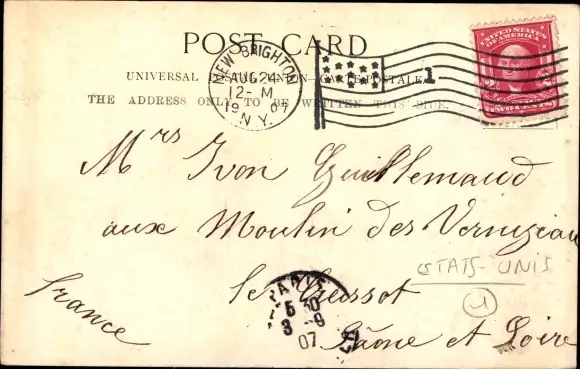 POST CARD
UNIVERSAL POSTAL UNION CARTE POSTALE
THE ADDRESS ONLY TO BE WRITTEN THIS SIDE.
NEW BRIGHTON
AUG 24
12-M
19 07
N.Y.
1
UNITED STATES
OF AMERICA
Mrs Ivon Guillemaud
aux Moulin des
le Creussot
Saône et Loire
france
ETATS-UNIS
5 30
3-9
07